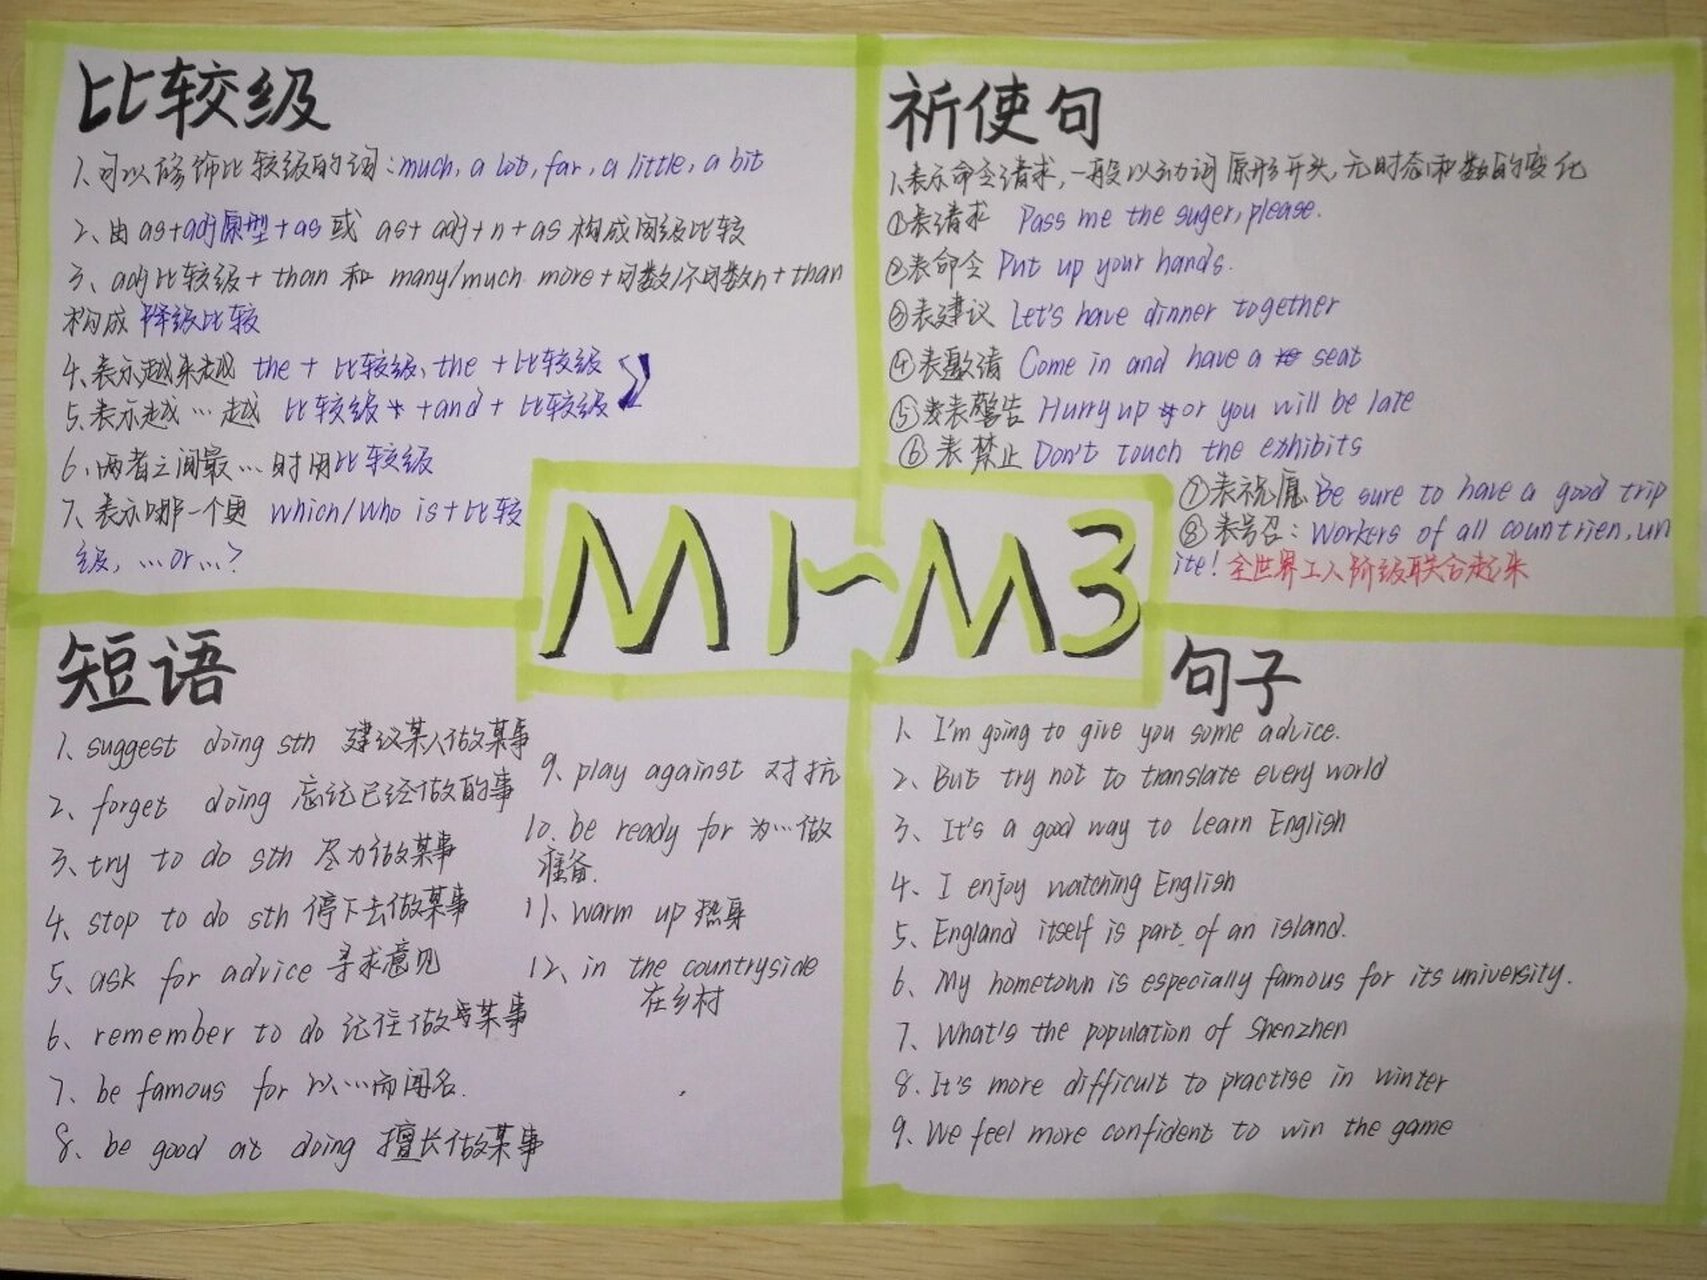 比较级
1、可以修饰比较级的词：much, a lot, far, a little, a bit
2、由as+adj原型+as 或 as+adj+n+as 构成同级比较
3、adj比较级+than 和 many/much more+可数/不可数n+than
构成 降级比较
4、表示越来越 the + 比较级、the + 比较级
5、表示越…越 比较级 +and + 比较级
6、两者之间最…时用比较级
7、表示哪一个更 which/who is+比较
级, …or…?
祈使句
1、表示命令请求,一般以动词原形开头,无时态和数的变化
①表请求 Pass me the suger, please.
②表命令 Put up your hands.
③表建议 Let's have dinner together
④表邀请 Come in and have a seat
⑤表警告 Hurry up or you will be late
⑥表禁止 Don't touch the exhibits
⑦表祝愿 Be sure to have a good trip
⑧表号召：Workers of all countrien, un
ite! 全世界工人阶级联合起来
M1~M3
短语
1、suggest doing sth 建议某人做某事
2、forget doing 忘记已经做的事
3、try to do sth 尽力做某事
4、stop to do sth 停下去做某事
5、ask for advice 寻求意见
6、remember to do 记住做某事
7、be famous for 以…而闻名.
8、be good at doing 擅长做某事
9、play against 对抗
10、be ready for 为…做
准备.
11、warm up 热身
12、in the countryside
在乡村
句子
1、I'm going to give you some advice.
2、But try not to translate every world
3、It's a good way to learn English
4、I enjoy watching English
5、England itself is part of an island.
6、My hometown is especially famous for its university.
7、What's the population of Shenzhen
8、It's more difficult to practise in winter
9、We feel more confident to win the game